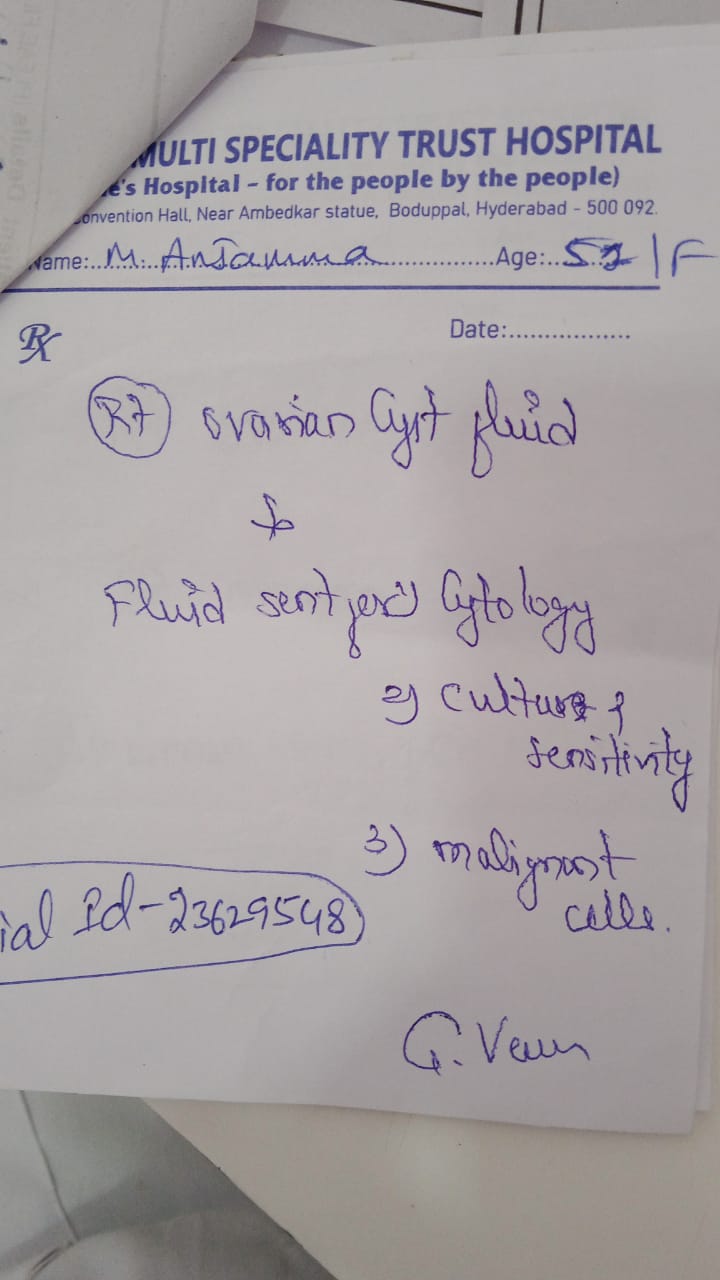 MULTI SPECIALITY TRUST HOSPITAL
e's Hospital - for the people by the people)
onvention Hall, Near Ambedkar statue, Boduppal, Hyderabad - 500 092.
Name:...M. Anjamma...Age:...52 | F
Rx
Date:..................
Rt ovarian Cyst fluid
Fluid sent for 1) Cytology
2) culture &
sensitivity
3) malignant
cells.
ial Id - 23629548
G.